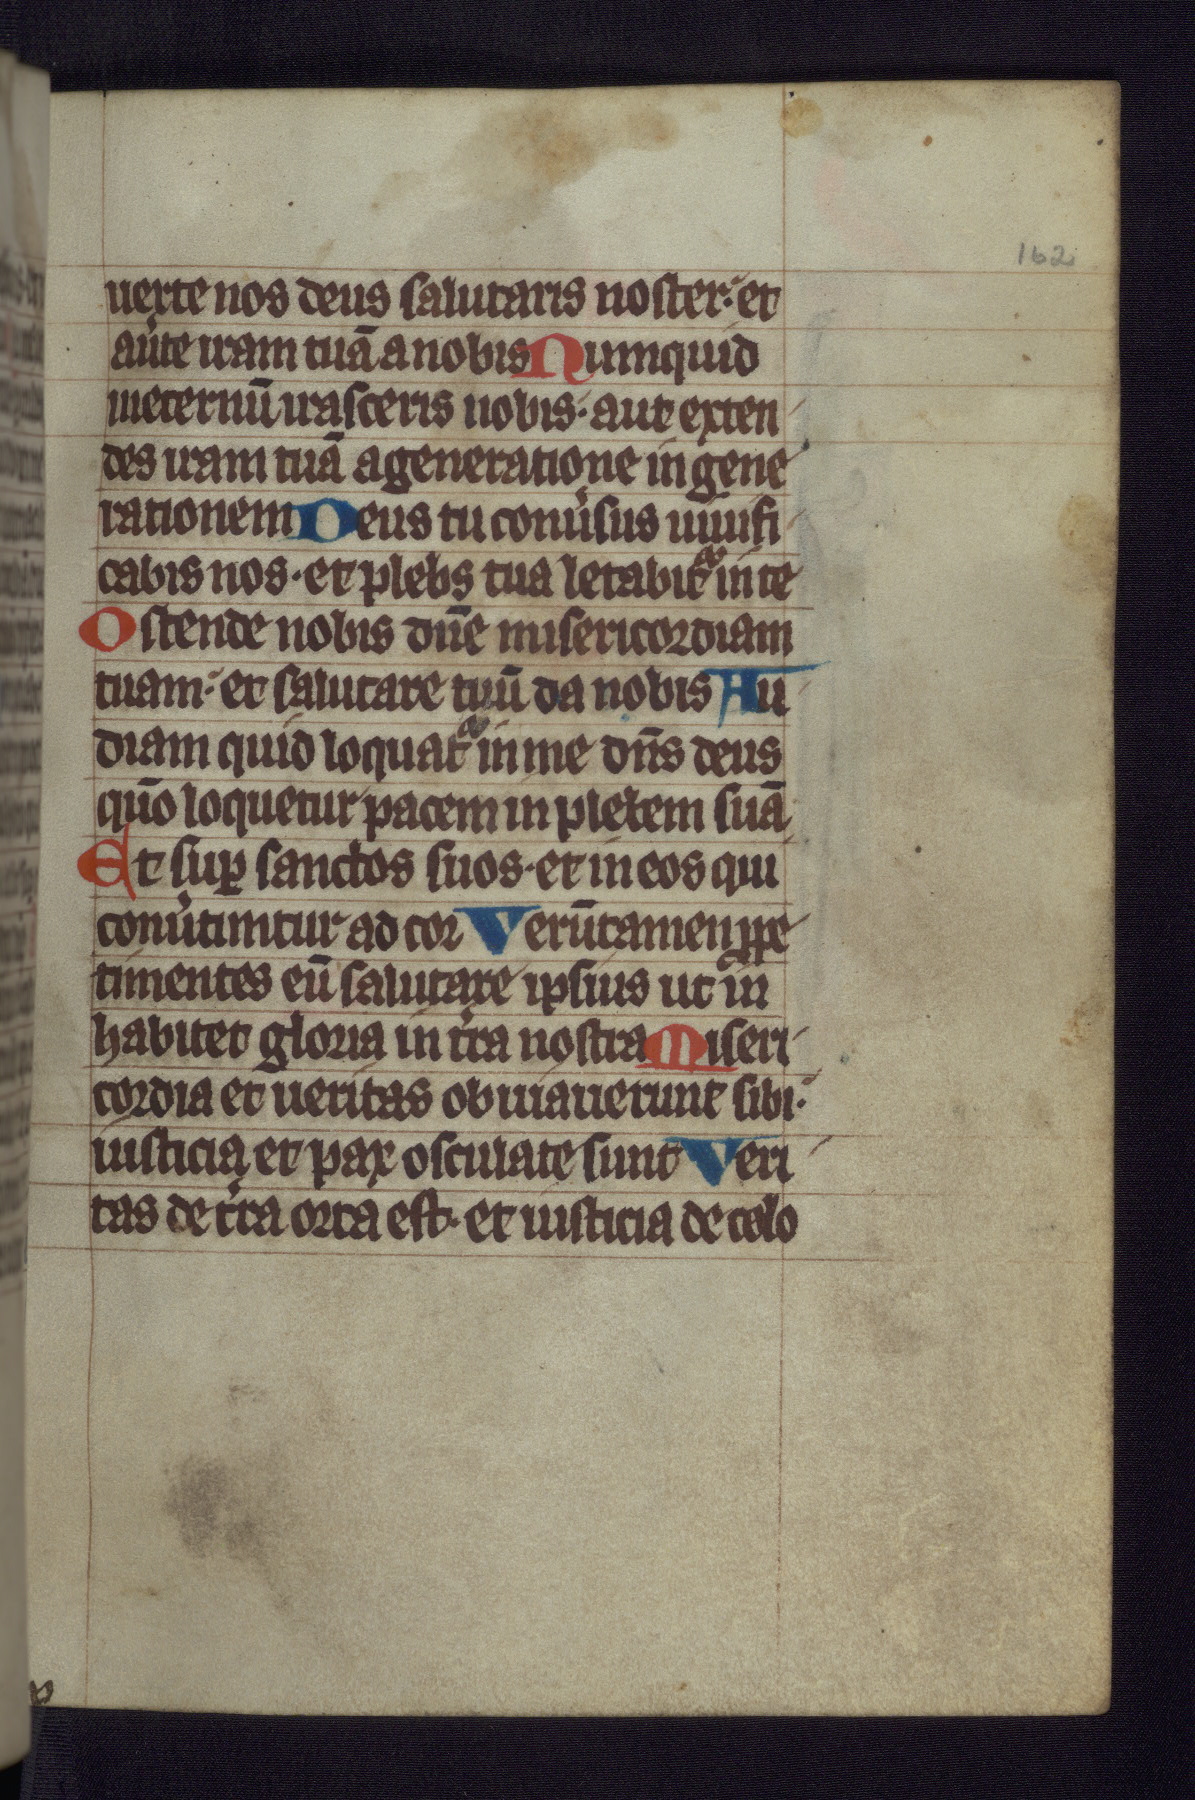 162
uerte nos deus salutaris noster: et
au͛te iram tuā a nobis Numquid
ineternū irasceris nobis· aut exten
des iram tuā a generatione in gene
rationem Deus tu conu͛sus uiuifi
cabis nos· et plebs tua letabit᷑ in te
Ostende nobis dn̄e misericordiam
tuam: et salutare tuū da nobis Au
diam quid loquat᷑ in me dn̄s deus
qm̄o loquetur pacem in plebem suā
Et suꝑ sanctos suos· et in eos qui
conu͛tuntur ad cor Verūtamen ꝓpe
timentes eū salutare ipsius ut in
habitet gloria in t͛ra nostra Miseri
cordia et ueritas obuiauerunt sibi:
iusticia et pax osculate sunt Veri
tas de t͛ra orta est· et iusticia de celo